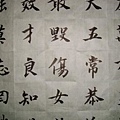 大五常恭
敢毀傷女
效才良知
莫忘罔